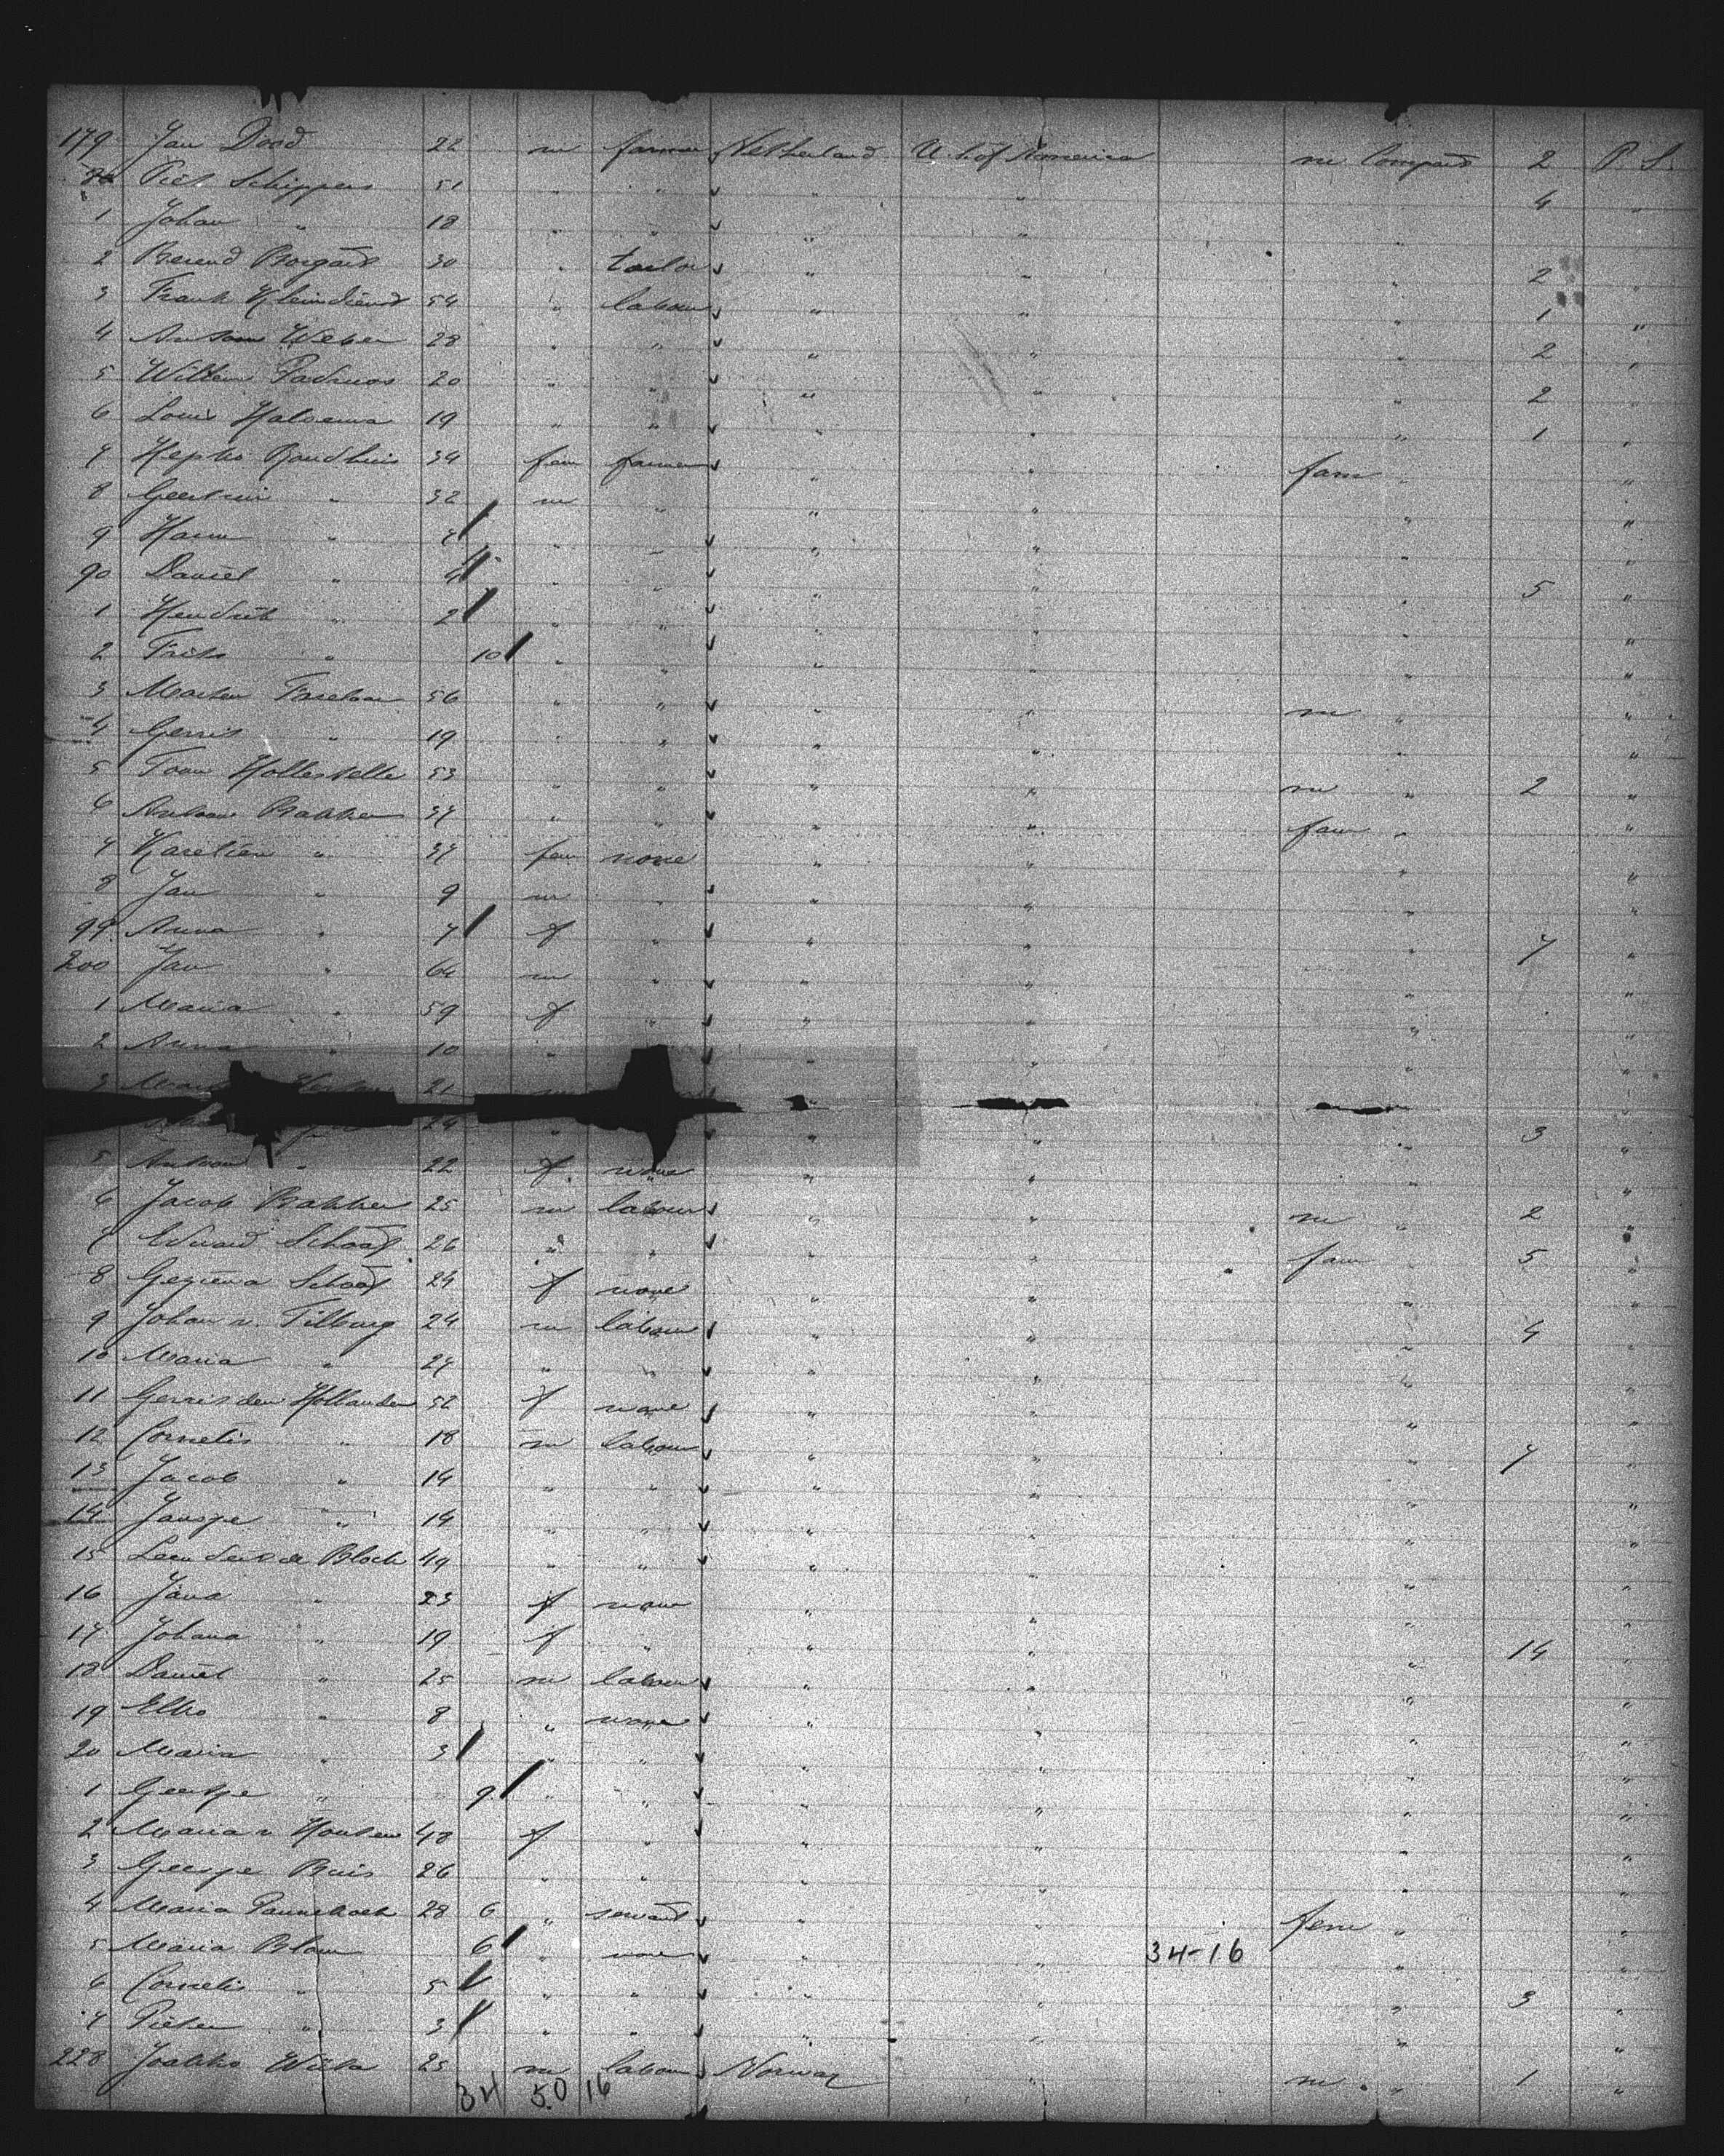 179 Jan Dood 22 m farmer Netherland U. S. of America m Compart 2 P. S.
80 Piet Schippers 51 " " " " " 4 "
1 Johan " 18 " " " " " "
2 Berend Borgart 30 " tailor " " " 2 "
3 Frank Kleindienst 54 " labour " " " 1 "
4 Antoon Weber 28 " " " " " 2 "
5 Willem Padmos 20 " " " " " 2 "
6 Louis Halsema 19 " " " " " 1 "
7 Hepko Zandhuis 34 fem farmer " " fam " "
8 Geertrui " 32 m " " " " "
9 Harm " 7 " " " " " "
90 Daniel " 4 " " " " " 5 "
1 Hendrik " 2 " " " " " "
2 Frits " 10 " " " " " "
3 Marten 56 " " " " m " "
4 Gerrit " 19 " " " " " "
5 Toon Hollestelle 53 " " " " m " 2 "
6 Antoon Bakker 37 " " " " fam " "
7 Karelien " 37 fem none " " " "
8 Jan " 9 m " " " " "
99 Anna " 7 f " " " " 7 "
200 Jan " 64 m " " " " "
1 Maria " 59 f " " " " "
2 Anna " 10 " " " "
3 21 m " "
24 " " " 3 "
5 Antoon " 22 f none " " " "
6 Jacob Bakker 25 m labour " " m " 2 "
7 Eduard Schaaf 26 " " " " fam " 5 "
8 Geziena Schaaf 24 f none " " " "
9 Johan v. Tilburg 24 m labour " " " 4 "
10 Maria " 27 " " " " " "
11 Gerrit den Hollander 52 f none " " " "
12 Cornelis " 18 m labour " " " 7 "
13 Jacob " 14 " " " " " "
14 Jansje " 14 " " " " " "
15 Leendert de Block 49 " " " " " "
16 Jana " 23 f none " " " "
17 Johana " 19 f " " " " 14 "
18 Daniel " 25 m labour " " " "
19 Elko " 8 " none " " " "
20 Maria " 3 " " " " " "
1 Geertje " 9 " " " " " "
2 Maria v. Houten 48 f " " " " "
3 Geesje Buis 26 " " " " " "
4 Maria Pannekoek 28 6 " servant " " fem " "
5 Maria Blom 6 " none " " 34-16 " "
6 Cornelis " 5 " " " " " 3 "
7 Pieter " 3 " " " " " "
228 25 m labour Norway " m " 1 "
34 50 16